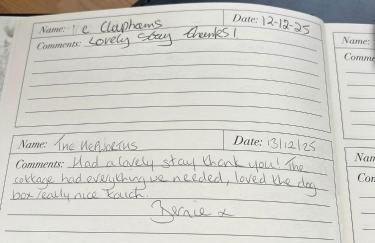 Name: e Claphams Date: 12-12-25
Comments: Lovely stay thanks!
Name: The Hepworths Date: 13/12/25
Comments: Had a lovely stay thank you! The
cottage had everything we needed, loved the dog
box really nice touch.
Bernie x
Name:
Comme
Nam
Con